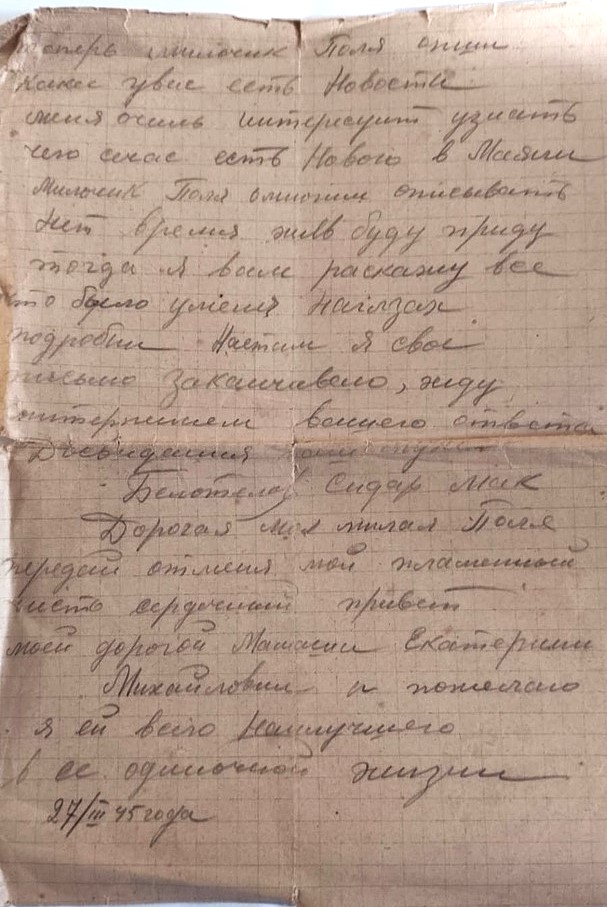 теперь милочик Поля опиши
какие увас есть Новости
меня очень интересуит узнать
чего счас есть Нового в Маячки
Милочик Поля омногим описывать
нет время жив буду приду
тогда я вам раскажу все
что было уменя наглзах
подробни Настим я свое
письмо заканчиваю, жду
нитерпением вашего ответа
Досвидения
Белотелов Сидар Мик
Дорогая моя милая Поля
передай отменя мой пламенный
чисто сердочный привет
моей дорогой Мамаши Екатерини
Михайловни и пожелаю
я ей всего Наилучшего
в ее одиночной жизни
27/III 45 года